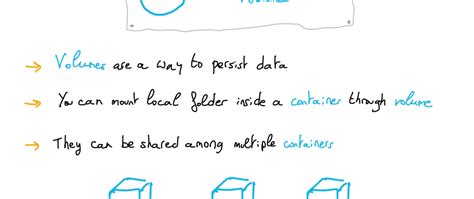 Volumes are a way to persist data
You can mount local folder inside a container through volume
They can be shared among multiple containers